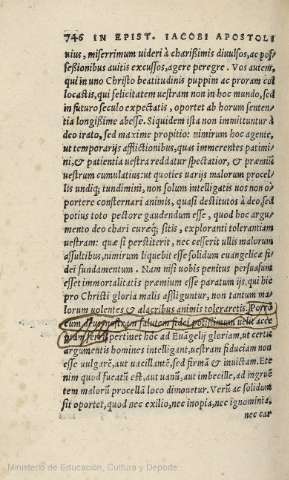 746 IN EPIST. IACOBI APOSTOLI
uius, miserrimum uideri à charißimis diuulsos, ac pos
seßionibus auitis excussos, agere peregre. Vos autem,
qui in uno Christo beatitudinis puppim ac proram col
locastis, qui felicitatem uestram non in hoc mundo, sed
in futuro seculo expectatis, oportet ab horum senten
tia longißime abesse. Siquidem ista non immittuntur à
deo irato, sed maxime propitio: nimirum hoc agente,
ut temporarijs afflictionibus, quas immerentes patimi
ni, & patientia uestra reddatur spectatior, & præmiũ
uestrum cumulatius: ut quoties uarijs malorum procel
lis undiq; tundimini, non solum intelligatis uos non o
portere consternari animis, quasi destitutos à deo, sed
potius toto pectore gaudendum esse, quod hoc argu
mento deo chari curæq; sitis, exploranti tolerantiam
uestram: quæ si perstiterit, nec cesserit ullis malorum
assultibus, nimirum liquebit esse solidum euangelicæ fi
dei fundamentum. Nam nisi uobis penitus persuasum
esset immortalitatis præmium esse paratum ijs, qui hic
pro Christi gloria malis affliguntur, non tantum ma
lorum uolentes & alacribus animis toleraretis. Porrò
cum ad uestram salutem fidei
pertinet hoc ad Euãgelij gloriam, ut certis
argumentis homines intelligant, uestram fiduciam non
esse uulgarẽ, aut uacillantẽ, sed firmã & inuictam. Ete
nim quod fucatũ est, aut uanũ, aut imbecille, ad ingruẽ
tem malorũ procellã loco dimouetur. Verũ ac solidum
sit oportet, quod nec exilio, nec inopia, nec ignominia,
nec car
Ministerio de Educación, Cultura y Deporte